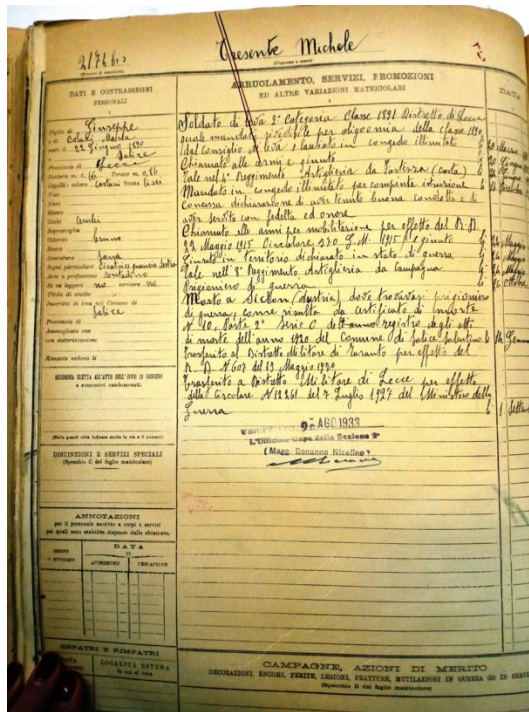 21726 bis
(Numero di matricola)
Presente Michele
(Cognome e nome)
DATI E CONTRASSEGNI
PERSONALI
Figlio di Giuseppe
e di Maria
nato il 22 Giugno 1890
a Salice
Provincia di Lecce
Statura m. 1, 66 Torace m. 0, 86
Capelli: colore castani forma lisci
Viso
Naso
Mento
Occhi
Sopracciglia
Colorito bruno
Bocca
Dentatura sana
Segni particolari Cicatrice
Arte o professione contadino
Se sa leggere no scrivere no
Titolo di studio
Inscritto di leva nel Comune di
Salice
Provincia di
Ammogliato con
con autorizzazione
Rimasto vedovo li
RESIDENZA ELETTA ALL'ATTO DELL'INVIO IN CONGEDO
e successivi cambiamenti.
(Nelle grandi città indicare anche la via e il numero).
DISTINZIONI E SERVIZI SPECIALI
(Specchio C del foglio matricolare)
ANNOTAZIONI
per il personale ascritto a corpi o servizi
pei quali sono stabilite dispense dalle chiamate.
CORPO
o SERVIZIO
DATA
DI
AMMISSIONE
CESSAZIONE
ESPATRI E RIMPATRI
DATA
LOCALITÀ ESTERA
in cui si reca
ARRUOLAMENTO, SERVIZI, PROMOZIONI
ED ALTRE VARIAZIONI MATRICOLARI
DATA
Soldato di leva 2ª Categoria Classe 1891 Distretto di Lecce
quale mandato rivedibile per oligoemia della classe 1890
dal Consiglio di leva e lasciato in congedo illimitato
Chiamato alle armi e giunto
Tale nel 1° Reggimento Artiglieria da Fortezza (costa)
Mandato in congedo illimitato per compiuta istruzione
Concessa dichiarazione di aver tenuto buona condotta e di
aver servito con fedeltà ed onore
Chiamato alle armi per mobilitazione per effetto del R. D.
22 Maggio 1915 Circolare 370 G. M. 1915 e giunto
Giunto in territorio dichiarato in stato di guerra
Tale nell' Reggimento Artiglieria da Campagna
Prigioniero di guerra
Morto a (Austria) dove trovavasi prigioniero
di guerra, come risulta da certificato di morte
N° 10, Parte 2ª Serie C dell'anno registro degli atti
di morte dell'anno 1920 del Comune di Salice Salentino
Trasferito al Distretto Militare di Taranto per effetto del
R. D. N° 607 del 13 Maggio 1920
Trasferito a Distretto Militare di Lecce per effetto
della Circolare N° 12261 del 7 Luglio 1927 del Ministero della
Guerra
AGO 1933
L'Ufficiale Capo della Sezione 2ª
(Magg. Bonanno Nicolino)
CAMPAGNE, AZIONI DI MERITO
DECORAZIONI, ENCOMI, FERITE, LESIONI, FRATTURE, MUTILAZIONI IN GUERRA OD IN SERVI
(Specchio D del foglio matricolare)